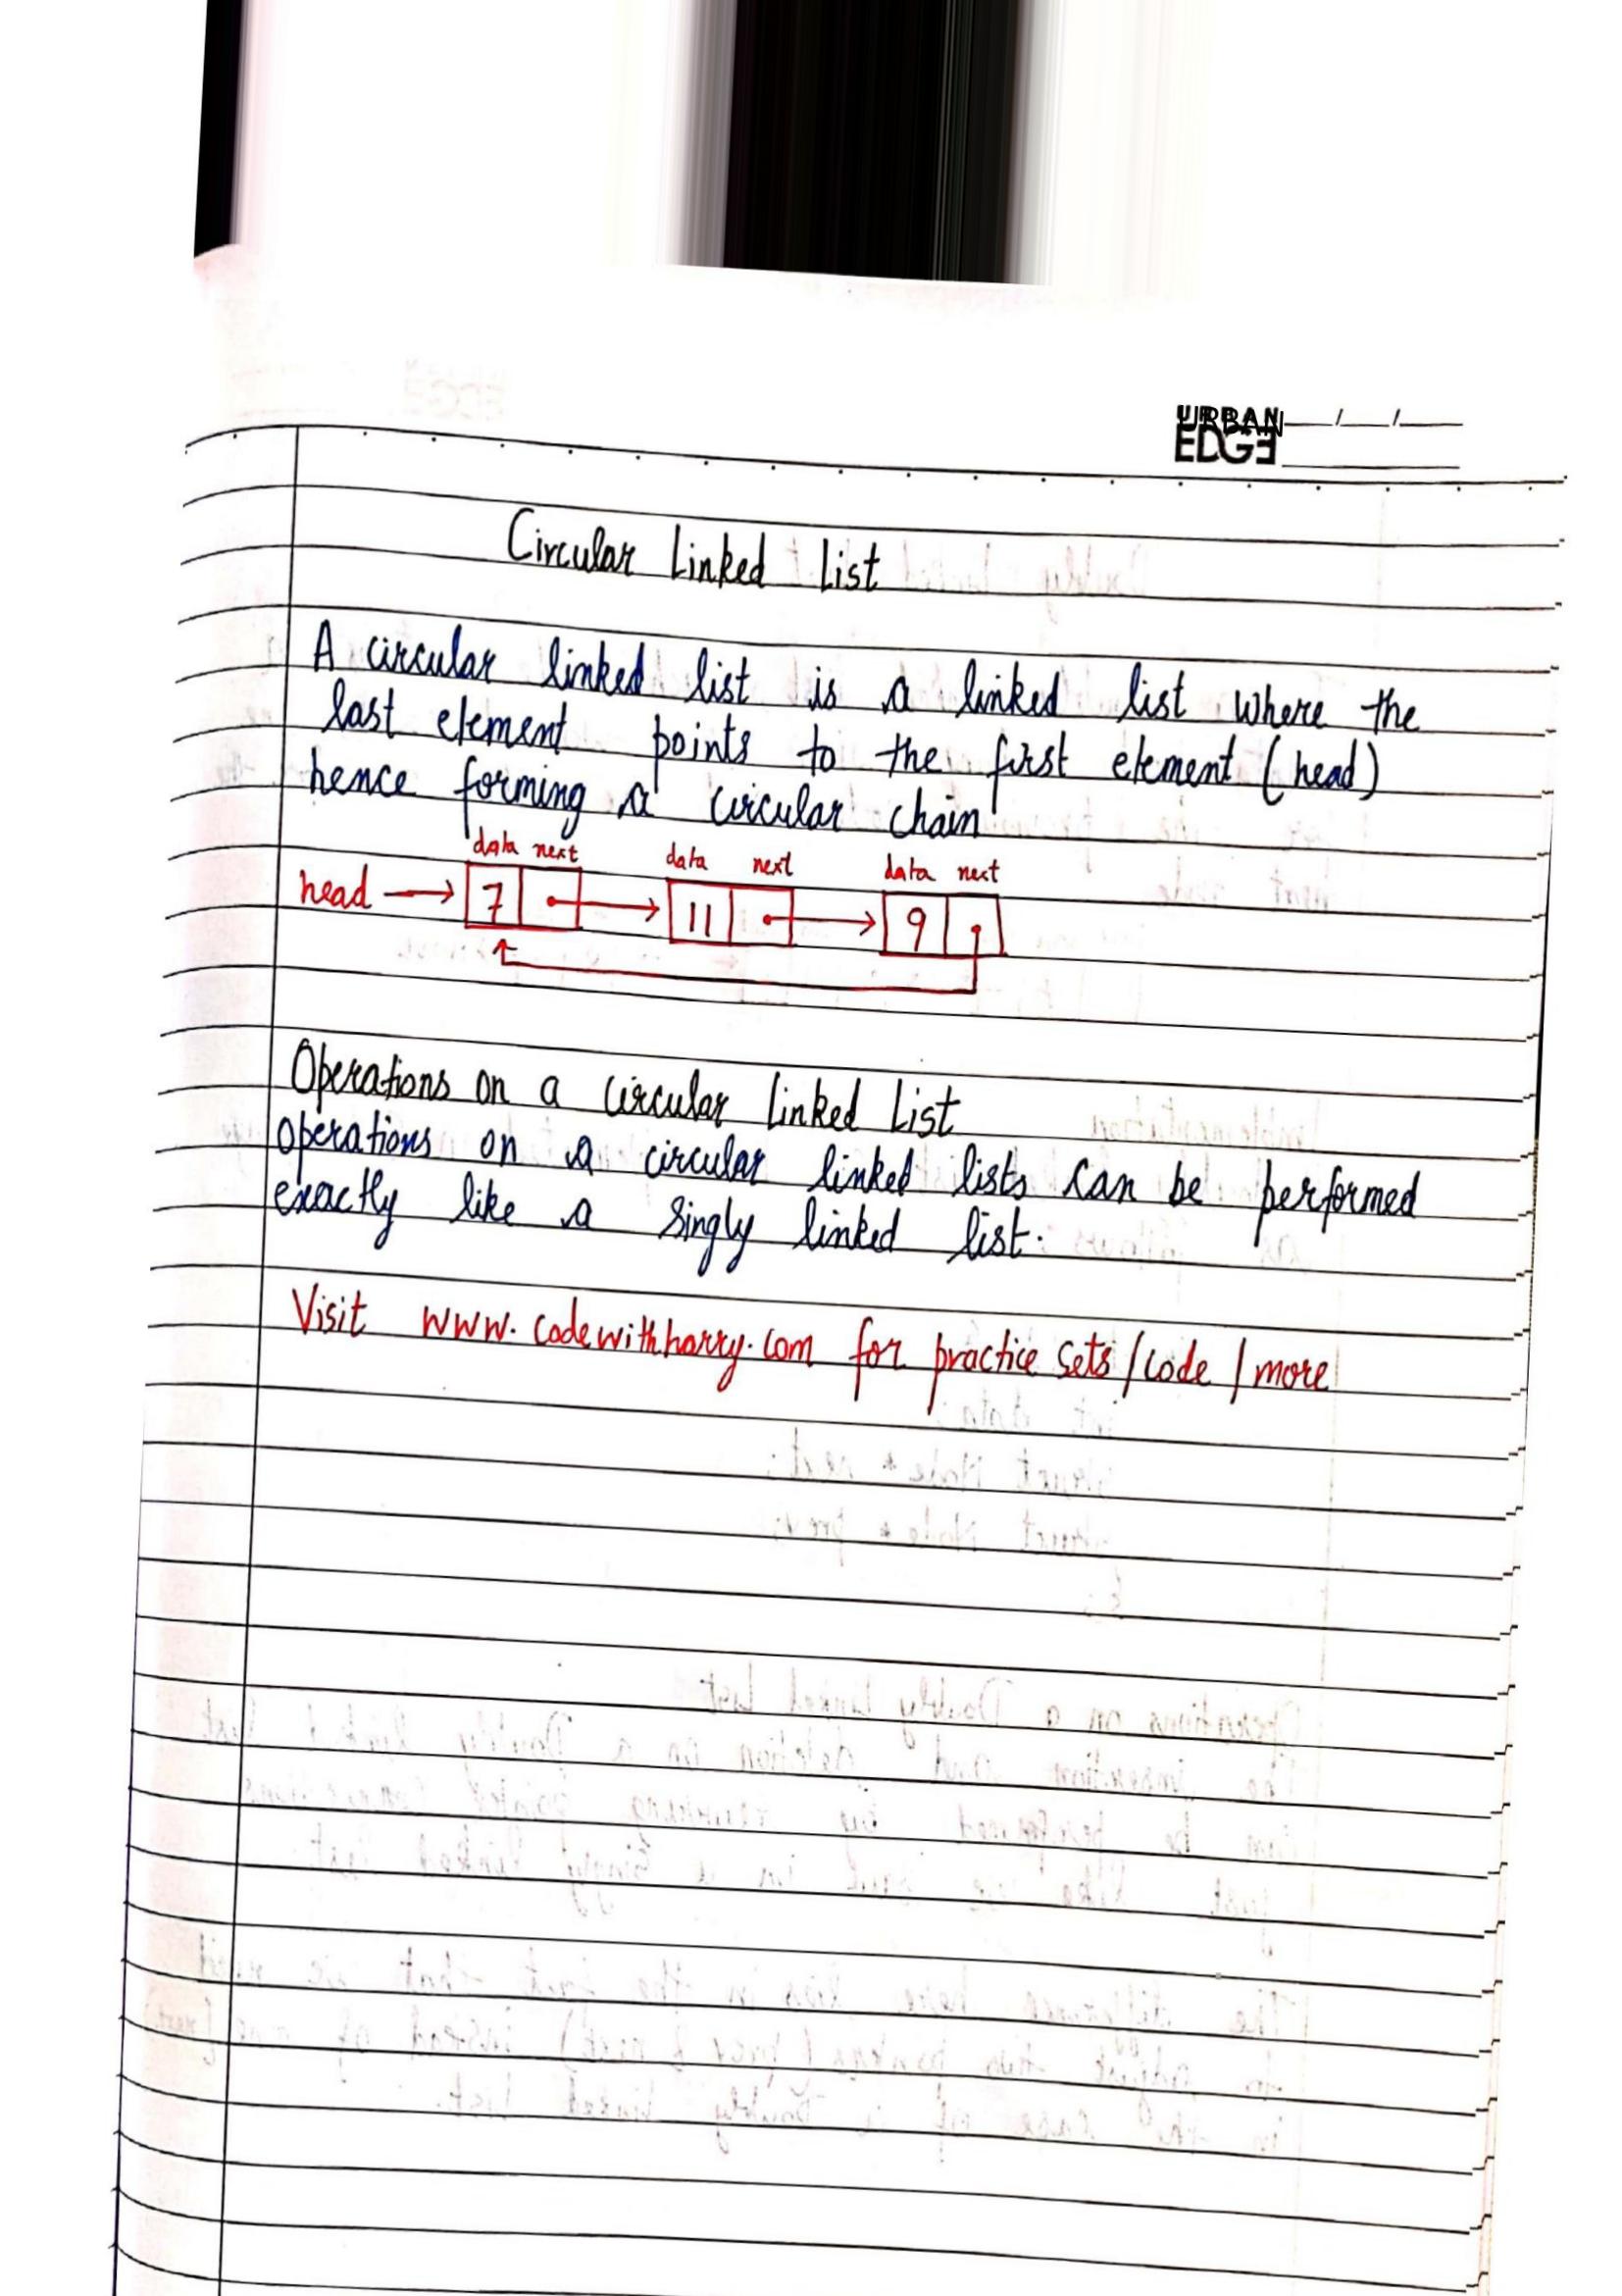 URBAN
EDGE
Circular Linked List
A circular linked list is a linked list where the
last element points to the first element (head)
hence forming a circular chain
data next data next data next
head 7 11 9
Operations on a circular Linked List
Operations on a circular linked lists can be performed
exactly like a singly linked list.
Visit www.codewithharry.com for practice sets/code/more